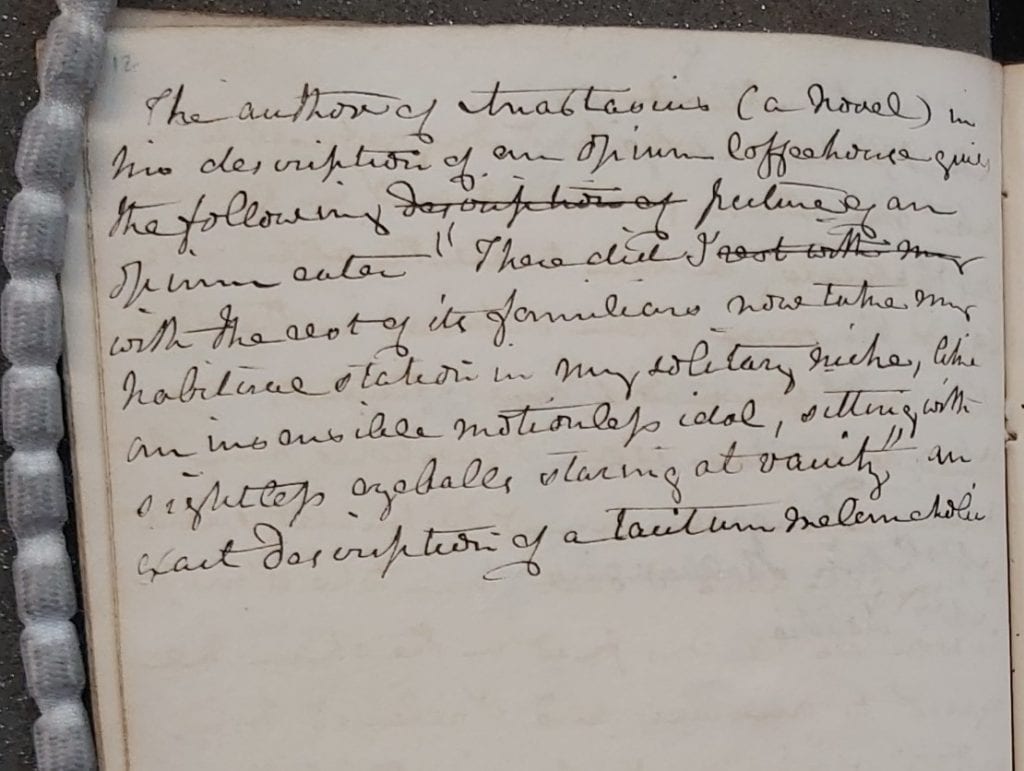 12
The author of Anastasius (a Novel) in
his description of an opium Coffeehouse gives
the following description of picture of an
opium eater " There did I rest with my
with the rest of its familiars now take my
habitual station in my solitary niche, like
an insensible motionless idol, sitting with
sightless eyeballs staring at vanity" an
exact description of a taciturn Melancholic